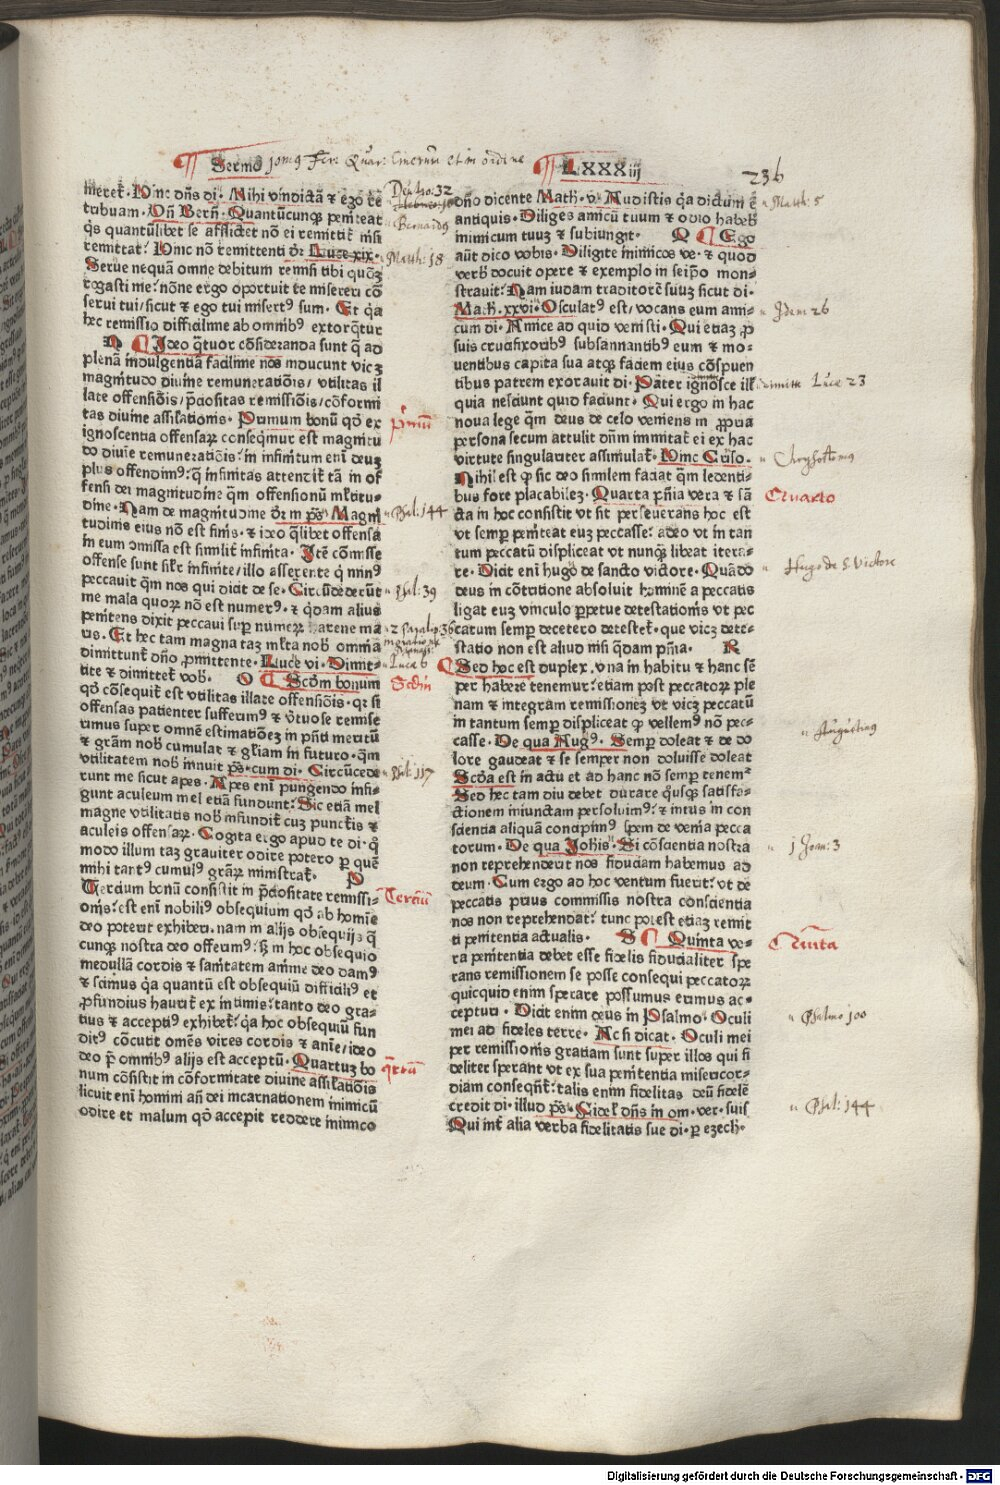 Sermo LXXXiij
236
meret̃. Hinc dñs di. Mihi vindictã & ego re
tribuam. Dñ Bern̄. Quantũcunqꝫ peniteat
qͥs quantũlibet se afflictet nõ ei remittit̃ nisi
remittat. Hinc nõ remittenti dr̃ Luce xix.
Serue nequã omne debitum remisi tibi quoꝫ
rogasti me: nõne ergo oportuit te misereri cõ
serui tui/sicut & ego tui misertꝰ sum. Et qͥa
hec remissio difficilime ab omnibꝰ extorquet̃
N Ideo qͣtuor cõsideranda sunt q̃ ad
plenã indulgentiã facilime nos inducunt vicꝫ
magnitudo diuine remunerationis/ vtilitas il
late offensiõis/ p̃ciositas remissiõis/cõformi
tas diuine assilationis. Primum bonũ qd̓ ex
ignoscentia offensarꝫ conseqͥmur est magnitu
do diuie remunerationis: in infinitum enĩ deuꝫ
plus offendimꝰ: q̃ infinitas attendit̃ tã in of
fensi dei magnitudine qͣm offensionũ multitu-
dine. Nam de magnitudine dr̃ in ps̃. Magni
tudinis eius nõ est finis. & ideo qͣlibet offensa
in eum cõmissa est similit̃ infinita. Itẽ cõmisse
offense sunt silr̃ infinite/ illo asserente q̃ minꝰ
peccauit qͣm nos qui dicit de se. Circũdederũt
me mala quorꝫ nõ est numerꝰ. & qͥdam alius
penitens dixit peccaui supͥ numerꝫ harene ma
ris. Et hec tam magna tam mľta nob̃ omnia
dimittunt̃ dño promittente. Luce vi. Dimit-
tite & dimittet̃ vob̃. O Scd̓m bonum
qd̓ cõsequit̃ est vtilitas illate offensiõis. qͥ si
offensas patienter sufferimꝰ & vͥtuose remise
rimus super omnẽ estimationeꝫ in pñti meritũ
& grãm nob̃ cumulat & gľiam in futuro. qͣm
vtilitatem nob̃ innuit ps̃. cum di. Circũcede
runt me sicut apes. Apes enĩ pungendo infi-
gunt aculeum mel etiã fundunt: Sic etiã mel
magne vtilitatis nob̃ infundit̃ cuꝫ punctis &
aculeis offensarꝫ. Cogita ergo apud te di. q̃
modo illum taꝫ grauiter odire potero per quẽ
mihi tantꝰ cumulꝰ grãrꝫ ministrat̃. P
Tercium bonũ consistit in p̃ciositate remissi-
onis: est enĩ nobiliꝰ obsequium qd̓ ab homĩe
deo poterit exhiberi. nam in alijs obsequijs q̃
cunqꝫ nostra deo offerimꝰ: sꝫ in hoc obsequio
medullã cordis & sanitatem anime deo damꝰ
& scimus qͥa quantũ est obsequiũ difficiliꝰ et
profundius haurit̃ ex intimis: tanto deo gra-
tius & acceptiꝰ exhibet̃: qͥa hoc obsequiũ fun
ditꝰ cõcutit omẽs vires cordis & aniẽ/ ideo
deo pre omnibꝰ alijs est acceptũ. Quartuꝫ bo
num cõsistit in cõformitate diuine assilatiõis
licuit enĩ homini añ dei incarnationem inimicũ
odire et malum qd̓ accepit reddere inimico
dño dicente Math. v. Audistis qͥa dictum ẽ
antiquis. Diliges amicũ tuum & odio habeb̃
inimicum tuuꝫ & subiungit. Q Ego
aũt dico vobis. Diligite inimicos ve. & quod
verb̓ docuit opere & exemplo in seipͦo mon-
strauit: Nam iudam traditorẽ suuꝫ sicut di.
Math. xxvi. Osculatꝰ est/ vocans eum ami-
cum di. Amice ad quid venisti. Qui etiaꝫ pro
suis crucifixoribꝰ subsannantibꝰ eum & mo-
uentibus capita sua atqꝫ faciem eius cõspuen
tibus patrem exorauit di. Pater ignosce illis
quia nesciunt quid faciunt. Qui ergo in hac
noua lege qͣm deus de celo veniens in propria
persona secum attulit dñm immitat̃ ei ex hac
virtute singulariter assimulat̃. Hinc Criso.
Nihil est q̃ sic deo similem faciat qͣm ledenti-
bus fore placabileꝫ. Quarta pñia vera & sã
cta in hoc consistit vt sit perseuerans hoc est
vt semper peniteat euꝫ peccasse: adeo vt in tan
tum peccatũ displiceat vt nunqͣꝫ libeat itera-
re. Dicit enĩ hugo de sancto victore. Quãdo
deus in cõtritione absoluit hominẽ a peccatis
ligat euꝫ vinculo perpetue detestationis vt pec
catum semper decetero detestet̃. que vicꝫ dete-
statio non est aliud nisi qͣdam pñia. R
Sed hoc est duplex. vna in habitu & hanc sẽ
per habere tenemur: etiam post peccatorꝫ ple
nam & integram remissioneꝫ vt vicꝫ peccatũ
in tantum semper displiceat q̃ vellemꝰ nõ pec-
casse. De qua Augꝰ. Semper doleat & de do
lore gaudeat & se semper non doluisse doleat
Scd̓a est in actu et ad hanc nõ semper tenemꝰ
Sed hec tam diu debet durare qͦusqꝫ satisfa-
ctionem iniunctam persoluimꝰ: & intus in con
scientia aliquã concipimꝰ spem de venia pecca
torum. De qua Johis̃. Si cõscientia nostra
non reprehenderit nos fiduciam habemus ad
deum. Cum ergo ad hoc ventum fuerit: vt de
peccatis prius commissis nostra conscientia
nos non reprehendat: tunc potest etiaꝫ remit
ti penitentia actualis. S Quinta ve-
ra penitentia debet esse fidelis fiducialiter spe
rans remissionem se posse consequi peccatorꝫ
quicquid enim sperare possumus erimus ac-
cepturi. Dicit enim deus in Psalmo. Oculi
mei ad fideles terre. Ac si dicat. Oculi mei
per remissionis gratiam sunt super illos qui fi
deliter sperant vt ex sua penitentia misericor-
diam conseqñt̃: talis enim fidelitas deũ fidelẽ
credit di. illud ps̃. Fidel̃ dñs in om. ver. suis
Qui int̃ alia verba fidelitatis sue di. per ezech.
Deutro: 32
Bernardꝰ
Matth: 18
Primũ
Psal: 144
Psal: 39
Luca 6
Scd̓m
Psal: 117
Tercium
Matth: 5
Idem 26
Luce 23
Chrysostomꝰ
Quarto
Hugo de S. Victore
Augustinꝰ
1 Joan: 3
Quinta
Psalmo 100
Psal: 144
Digitalisierung gefördert durch die Deutsche Forschungsgemeinschaft - DFG